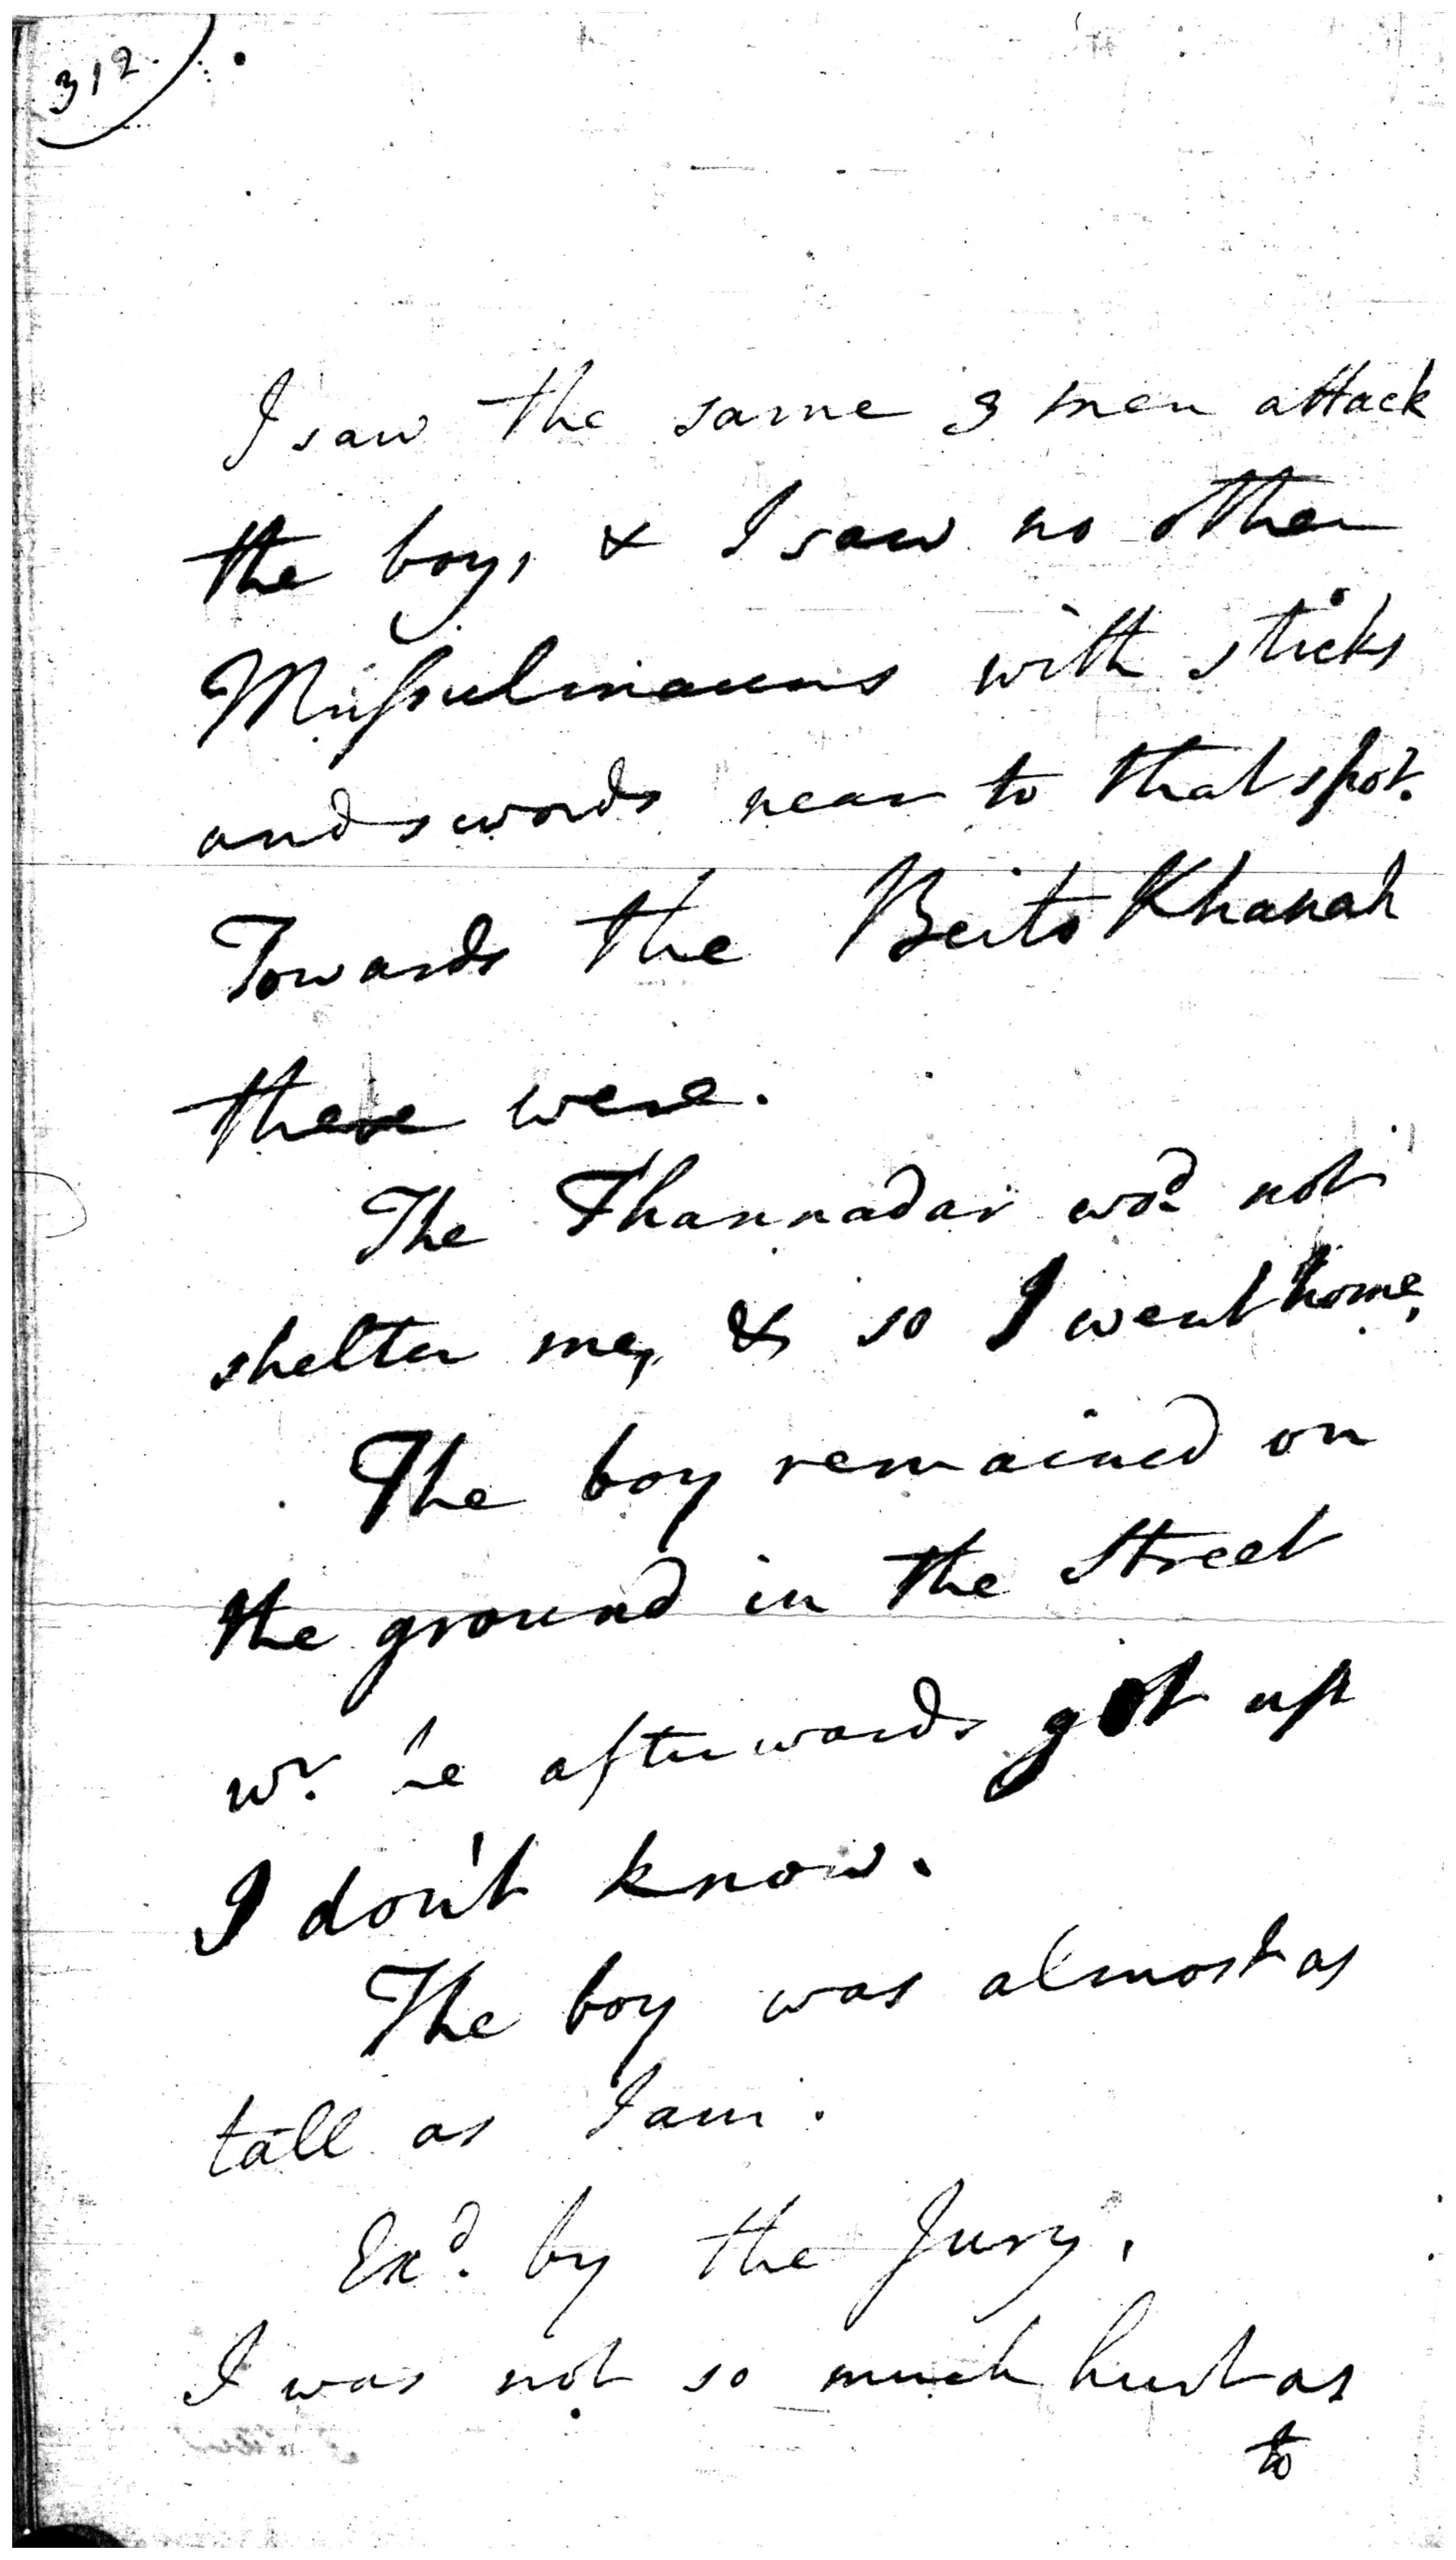 312.
I saw the same 3 men attack
the boy, & I saw no other
Mußulmauns with sticks
and swords near to that spot.
Towards the Beito Khanah
there were.
The Thannadar wod. not
shelter me, & so I went home.
The boy remained on
the ground in the Street
wr. he afterwards got up
I don't know.
The boy was almost as
tall as I am.
Exd. by the Jury,
I was not so much hurt as
to